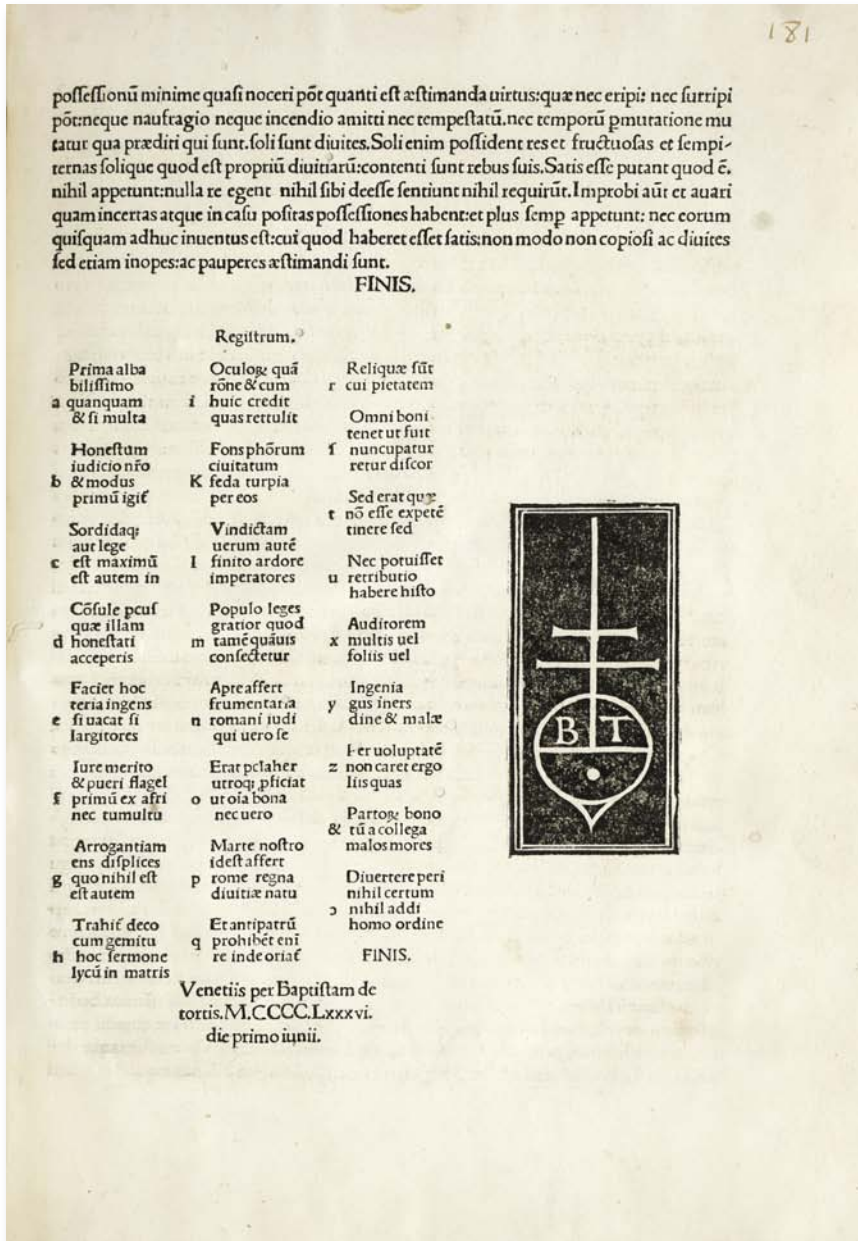 181
possessionū minime quasi noceri põt quanti est æstimanda uirtus:quæ nec eripi: nec surripi
põt:neque naufragio neque incendio amitti nec tempestatū.nec temporū pmutatione mu
tatur qua præditi qui sunt.soli sunt diuites.Soli enim possident res et fructuosas et sempi-
ternas solique quod est propriū diuitiarū:contenti sunt rebus suis.Satis esse putant quod ē.
nihil appetunt:nulla re egent nihil sibi deesse sentiunt nihil requirūt.Improbi aūt et auari
quam incertas atque in casu positas possessiones habent:et plus semp appetunt: nec eorum
quisquam adhuc inuentus est:cui quod haberet esset satis:non modo non copiosi ac diuites
sed etiam inopes:ac pauperes æstimandi sunt.
FINIS.
Registrum.
Prima alba
bilissimo
a quanquam
& si multa
Honestum
iudicio nr̄o
b & modus
primū igit̃
Sordidaqȝ
aut lege
c est maximū
est autem in
Cōsule pcus
quæ illam
d honestati
acceperis
Faciet hoc
teria ingens
e si uacat si
largitores
Iure merito
& pueri flagel
f primū ex afri
nec tumultu
Arrogantiam
ens displices
g quo nihil est
est autem
Trahit̃ deco
cum gemitu
h hoc sermone
lycū in matris
Oculoꝝ quā
rōne & cum
i huic credit
quas rettulit
Fons phōrum
ciuitatum
K feda turpia
per eos
Vindictam
uerum autē
l finito ardore
imperatores
Populo leges
gratior quod
m tamē quāuis
consectetur
Apte affert
frumentaria
n romani iudi
qui uero se
Erat pclaher
utroqȝ pficiat
o ut oīa bona
nec uero
Marte nostro
idest affert
p rome regna
diuitiæ natu
Et antipatrū
q prohibēt enī
re inde oriat̃
Reliquæ sūt
r cui pietatem
Omni boni
tenet ut fuit
ſ nuncupatur
retur discor
Sed erat quæ
t nō esse expetē
tinere sed
Nec potuisset
u retributio
habere histo
Auditorem
x multis uel
foliis uel
Ingenia
y gus iners
dine & malæ
Per uoluptatē
z non caret ergo
liis quas
Partoꝝ bono
& tū a collega
malos mores
Diuertere peri
nihil certum
ɔ nihil addi
homo ordine
FINIS.
B T
Venetiis per Baptistam de
tortis.M.CCCC.Lxxxvi.
die primo iunii.